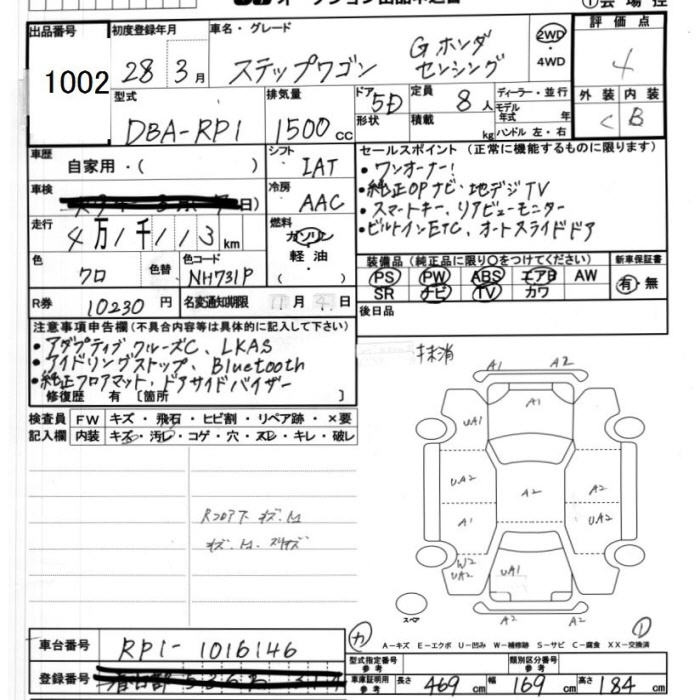 出品番号 初度登録年月 車名・グレード
1002 28年 3月 ステップワゴン Gホンダセンシング 2WD・4WD
評価点 4
型式 排気量 ドア形状 定員 積載 ディーラー・並行 外装 内装
DBA-RP1 1500cc 5D 8人 kg モデル年式 年 ハンドル 左・右 C B
車歴 自家用・( ) シフト IAT
セールスポイント (正常に機能するものに限ります)
・ワンオーナー!
車検 冷房 AAC
・純正OPナビ・地デジTV
・スマートキー、リアビューモニター
走行 4万1千113km 燃料 ガソリン 軽油
・ビルトインETC、オートスライドドア
色 クロ 色替 色コード NH731P
装備品 (純正品に限り○をつけてください) 新車保証書
PS PW ABS エアB AW 有・無
SR ナビ TV カワ
R券 10230円 名変通知期限 11月 4日
後日品
注意事項申告欄 (不具合内容等は具体的に記入して下さい)
・アダプティブクルーズC、LKAS
・アイドリングストップ、Bluetooth
・純正フロアマット・ドアサイドバイザー
修復歴 有 〔箇所 〕
抹消
検査員 FW キズ・飛石・ヒビ割・リペア跡・×要
記入欄 内装 キズ・汚レ・コゲ・穴・スレ・キレ・破レ
A1 A2
A1
UA1
UA2 A2 A2
A1 UA2
W2
UA2 UA1
A2 A2
スペア
Rフロア下 キズ.M
キズ.M.スリキズ
A-キズ E-エクボ U-凹み W-補修跡 S-サビ C-腐食 XX-交換済
車台番号 RP1-1016146
登録番号
型式指定番号 参考 類別区分番号 参考
車庫証明用 参考 長さ 469cm 幅 169cm 高さ 184cm